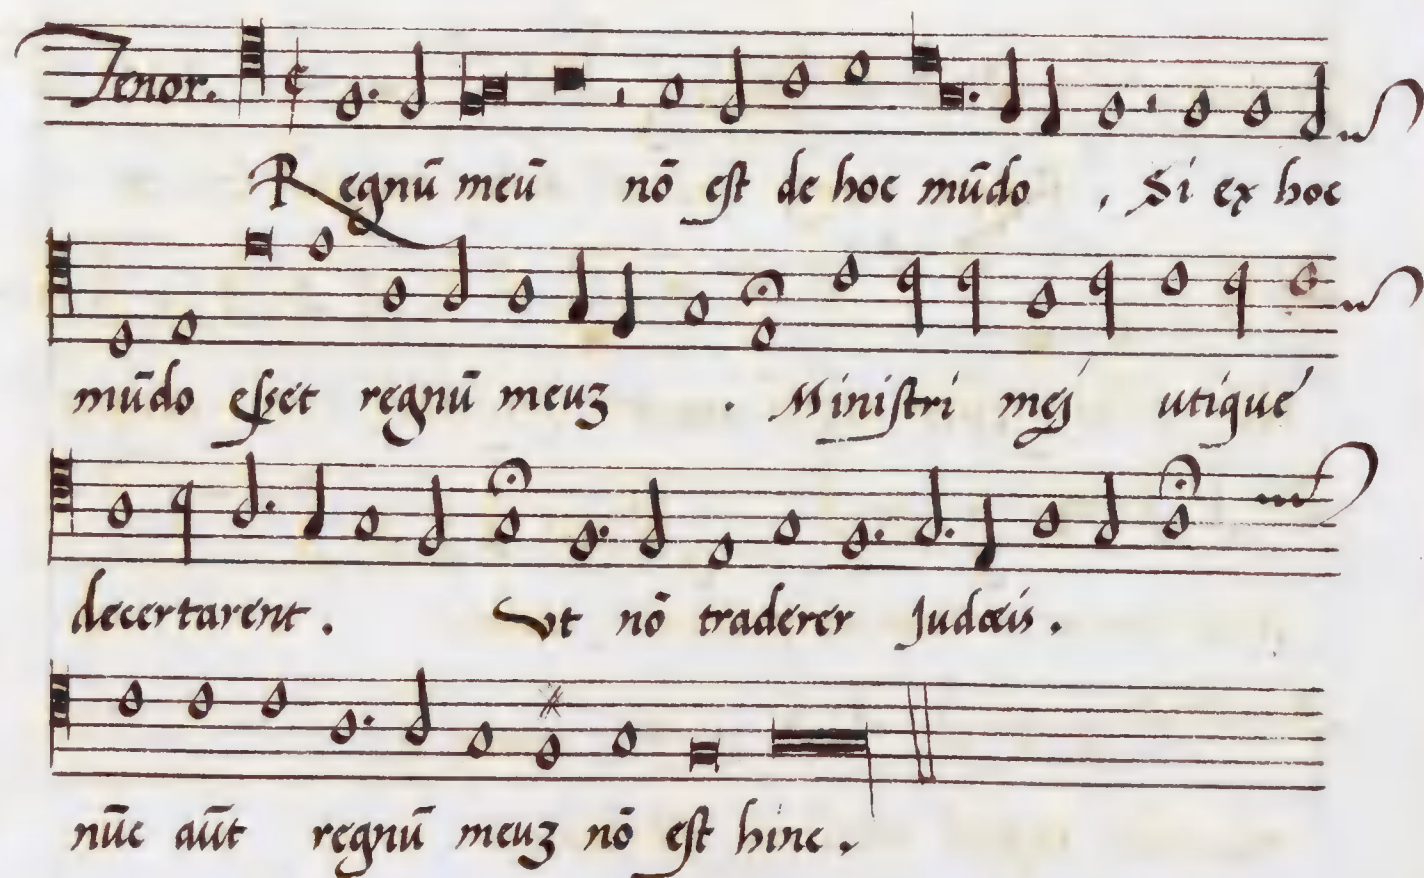 Tenor.
Regnū meū nō est de hoc mūdo , Si ex hoc
mūdo esset regnū meuȝ . Ministri mej utique
decertarent . Vt nō traderer Judæis .
nūc aūt regnū meuȝ nō est hinc .